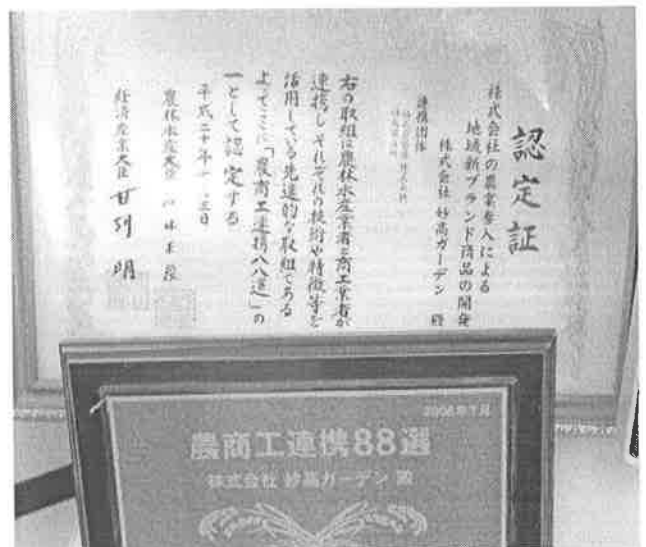 認定証
株式会社の農業参入による
地域新ブランド商品の開発
株式会社 妙高ガーデン 殿
連携団体
右の取組は農林水産業者と商工業者が
連携し、それぞれの技術や特徴等を
活用している先進的な取組である
よってここに「農商工連携八八選」の
一として認定する
平成二十年
農林水産大臣
経済産業大臣 甘利 明
2008年7月
農商工連携88選
株式会社 妙高ガーデン 殿